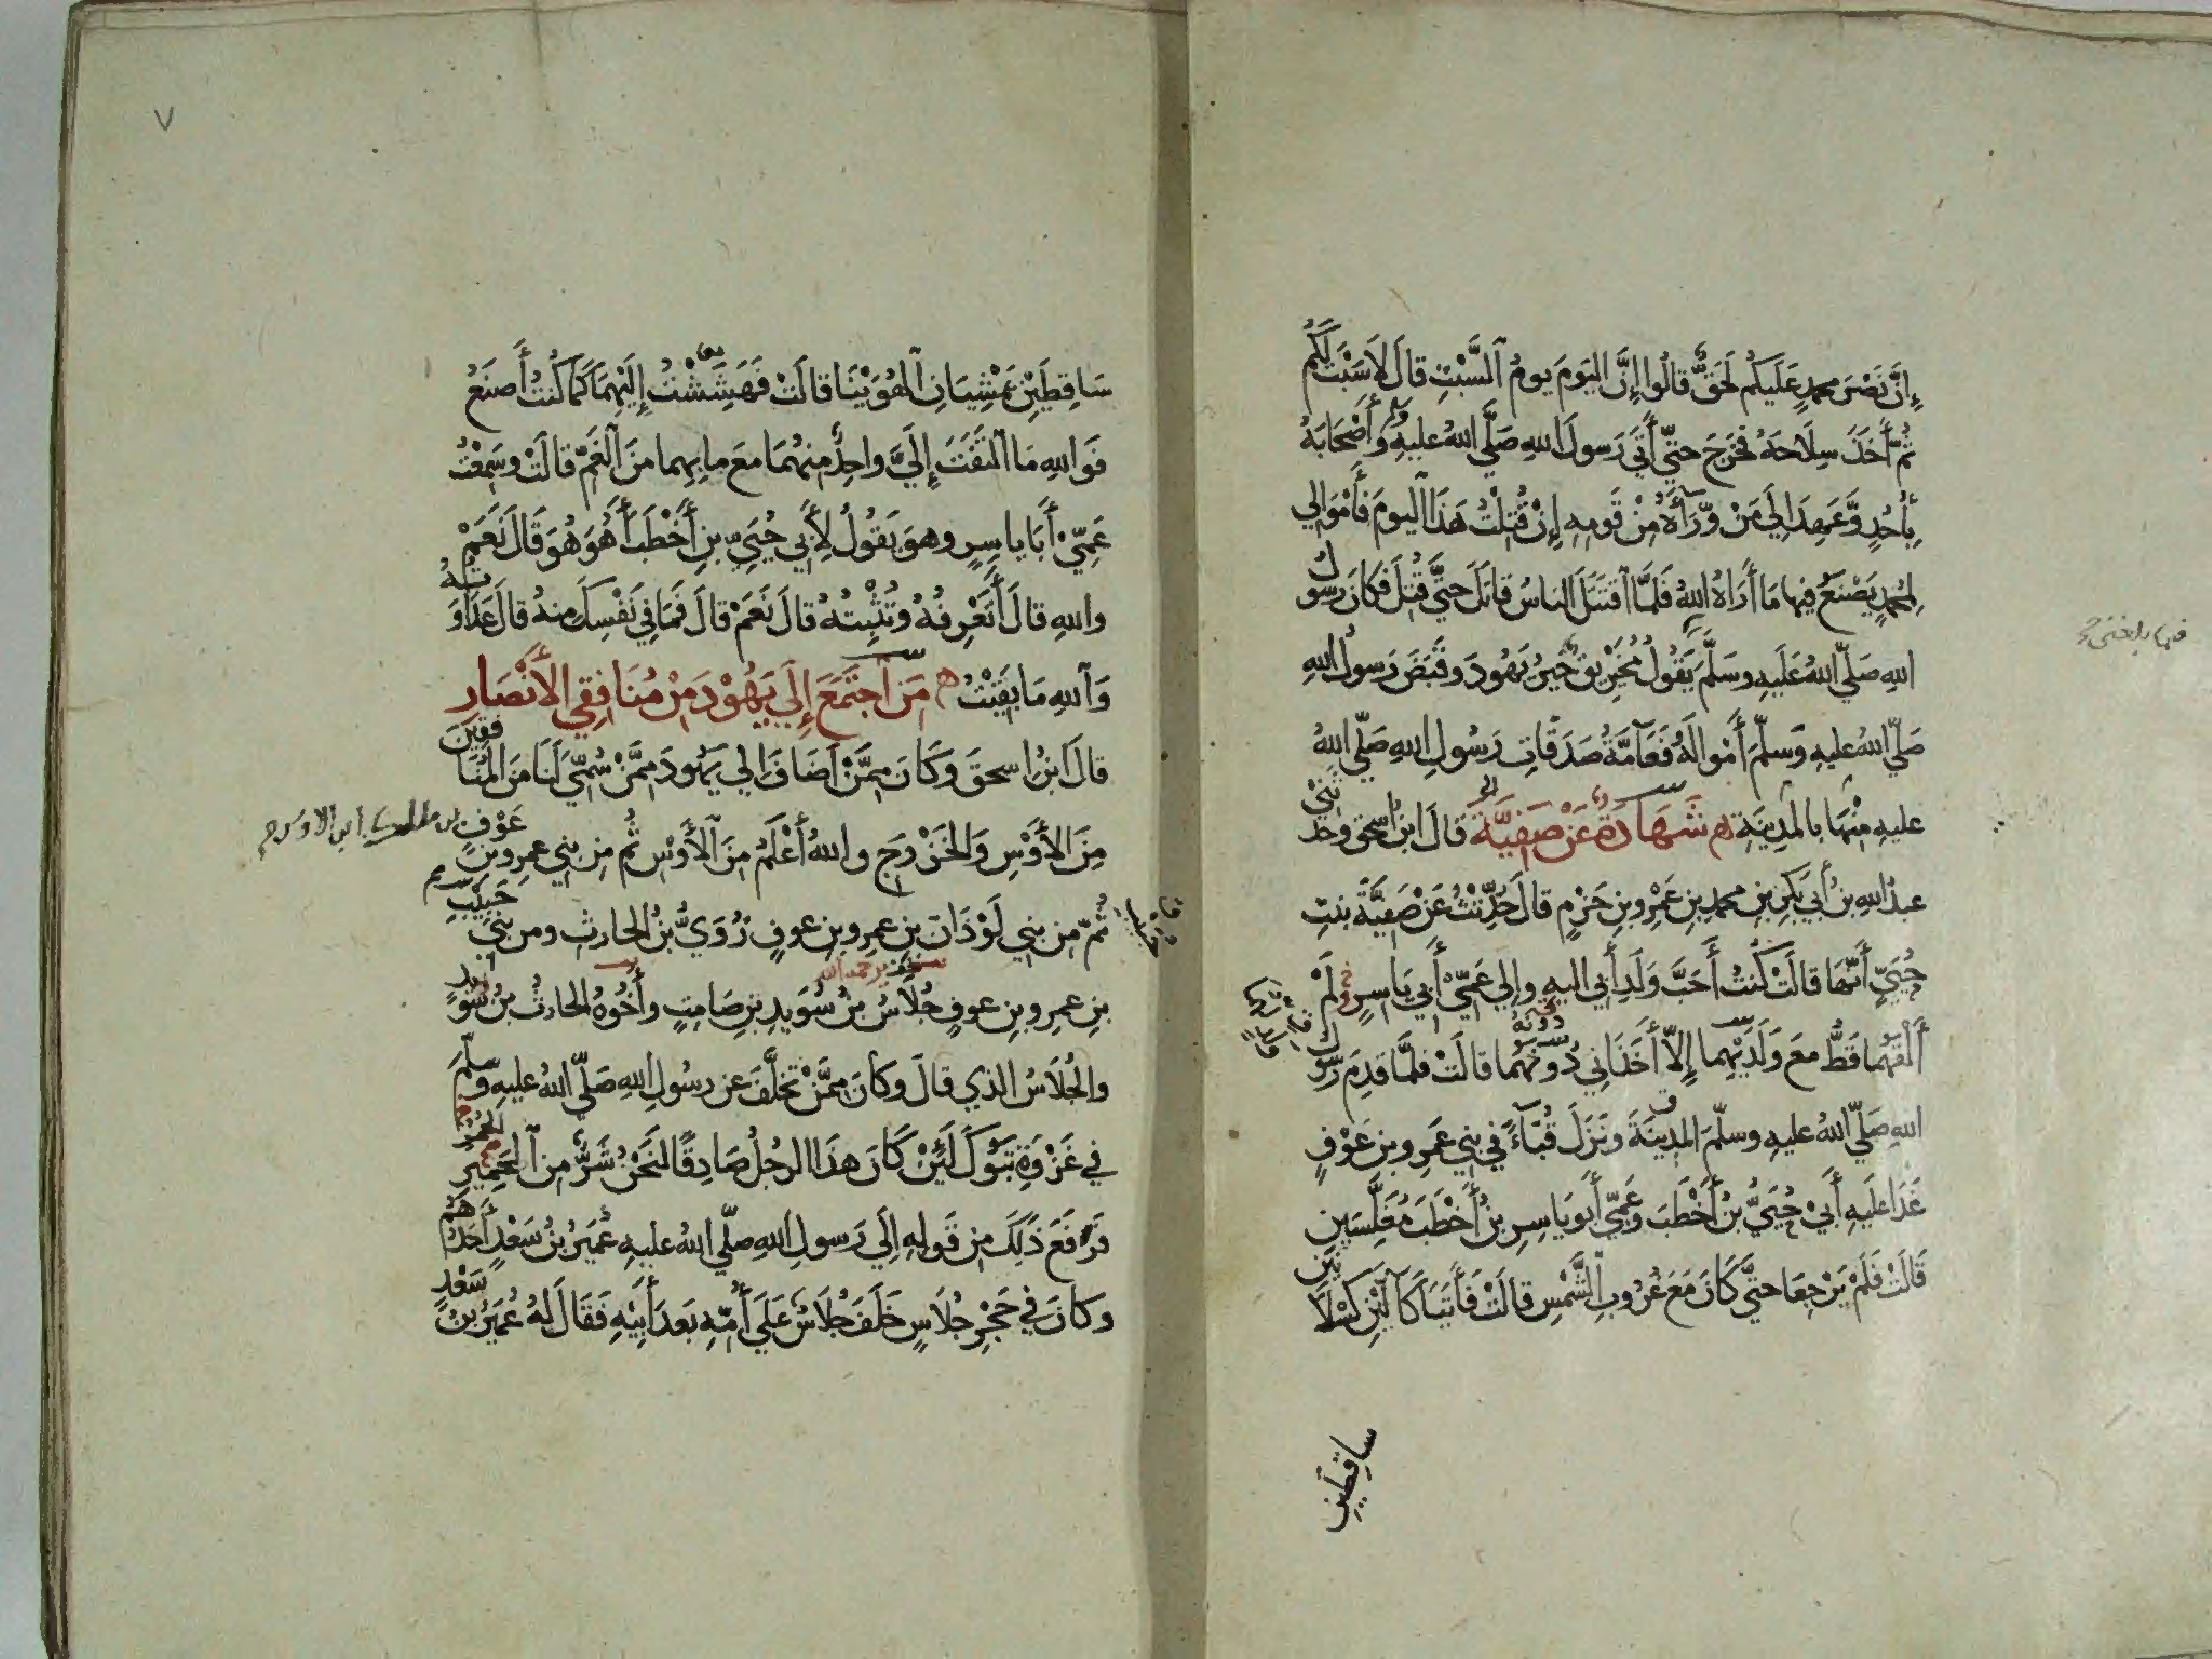 إِنَّ نَصْرَ محمدٍ عَلَيكم لَحَقٌّ قالُوا إِنَّ اليَومَ يومُ ٱلسَّبْتِ قالَ لاَ سَبْتَ لَكُم
ثُمَّ أَخَذَ سِلَاحَهُ فخَرَجَ حتّى أَتَى رَسولَ اللهِ صَلَّى اللهُ عليهِ وأَصْحَابَهُ
بِأُحُدٍ وَّعَهِدَ اِلَى مَنْ وَّرَآءَهُ مِنْ قَومِهِ إِنْ قُتِلْتُ هَذَا ٱليومَ فَأَمْوَالِي
لِمُحمدٍ يَصْنَعُ فِيها مَا أَرَاهُ اللهُ فَلَمَّا ٱقتَتَلَ الناسُ قاتَلَ حَتَّى قُتِلَ فكانَ رسولُ
اللهِ صَلّى اللهُ عَلَيهِ وسَلَّمَ يَقُولُ مُخَيْرِيقٌ خَيرُ يَهُودَ وقَبَضَ رَسولُ اللهِ
صَلّى اللهُ عليهِ وَسلّمَ أَمْوالَهُ فَعَآمَّةُ صَدَقَاتِ رَسُولِ اللهِ صَلّى اللهُ
عليهِ مِنْهَا بالمَدِينَةِ شَهَادَةٌ عَنْ صَفِيَّةَ قالَ ابنُ اسحق وحدثَنِي
عبدُ اللهِ بنُ أَبِي بَكرِ بنِ محمدِ بنِ عَمْرِو بنِ حَزْمٍ قال حُدِّثْتُ عَنْ صَفِيَّةَ بنتِ
حُيَيٍّ أَنَّهَا قالَتْ كُنتُ أَحَبَّ وَلَدِ أَبِي اليهِ وإِلى عَمِّي أَبِي يَاسِرٍ وَلَمْ
أَلْقَهُما قَطُّ معَ وَلَدٍ لَهُما إِلاّ أَخَذَانِي دُونَهُ قالَتْ فلمَّا قَدِمَ رسولُ
اللهِ صَلّى اللهُ عليهِ وسلّمَ المَدِينَةَ ونَزَلَ قُبَآءً فِي بَنِي عَمرِو بنِ عَوْفٍ
غَدَا عَلَيهِ أَبِي حُيَيُّ بنُ أَخْطَبَ وَعَمِّي أَبُو يَاسِرِ بنُ أَخْطَبَ مُغَلِّسَينِ
قَالَتْ فَلَمْ يَرْجِعَا حَتَّى كَانَ مَعَ غُرُوبِ الشَّمْسِ قالَتْ فَأَتَيَا كَالَّيْنِ كَسْلَانَيْنِ
ساقِطَينِ
سَاقِطَيْنِ يَمْشِيَانِ ٱلهُوَيْنَا قالَتْ فَهَشِشْتُ إِلَيْهِمَا كَمَا كُنتُ أَصنَعُ
فَوَاللهِ مَا ٱلتَفَتَ إِلَيَّ واحِدٌ مِنهُمَا معَ ما بِهِما منَ ٱلغَمِّ قالَتْ وسَمِعْتُ
عَمِّي أَبَا ياسِرٍ وهوَ يَقُولُ لِأَبِي حُيَيِّ بنِ أَخْطَبَ أَهُوَ هُوَ قَالَ نَعَمْ
واللهِ قالَ أَتَعْرِفُهُ وتُثْبِتُهُ قالَ نَعَمْ قالَ فَمَا فِي نَفْسِكَ منهُ قالَ عَدَاوَتُهُ
وَٱللهِ مَا بَقِيْتُ مَنِ ٱجتَمَعَ إِلَى يَهُوْدَ مِنْ مُنَافِقِي الأَنْصَارِ
قالَ ابنُ اسحقَ وَكَانَ مِمَّنْ اَضَافَ اِلى يَهُودَ مِمَّنْ سُمِّيَ لَنَا منَ المُنَافِقِينَ
مِنَ الأَوْسِ وَالخَزْرَجِ واللهُ أَعْلَمُ مِنَ ٱلأَوْسِ ثُمَّ مِن بَنِي عمرِو بنِ عَوْفِ بن مالك بن الاوس
ثُمَّ من بَنِي لَوْذَانَ بنِ عمرِو بنِ عوفٍ زُوَيُّ بنُ الحارثِ ومن بَنِي حَبِيْبِ
بنِ عمرِو بنِ عوفٍ جُلَاسُ بنُ سُوَيدِ بنِ صَامِتٍ وأَخُوهُ الحارثُ بنُ سُوَيدٍ
والجُلَاسُ الذي قالَ وكانَ مِمَّنْ تَخَلَّفَ عن رسُولِ اللهِ صَلّى اللهُ عليهِ وسَلَّمَ
فِي غَزْوَةِ تَبُوكَ لَئِنْ كَانَ هذَا الرجُلُ صَادِقًا لَنَحْنُ شَرٌّ مِن ٱلحَمِيرِ
فرَفَعَ ذَلِكَ مِن قَولِهِ اِلَى رَسولِ اللهِ صلّى اللهُ عليهِ عُمَيرُ بنُ سَعْدٍ أَحَدُهُم
وكانَ فِي حَجْرِ جُلَاسٍ خَلَفَ جُلَاسٌ عَلَى أُمِّهِ بَعدَ أَبِيْهِ فَقَالَ لَهُ عُمَيرُ بنُ سَعْدٍ
٧